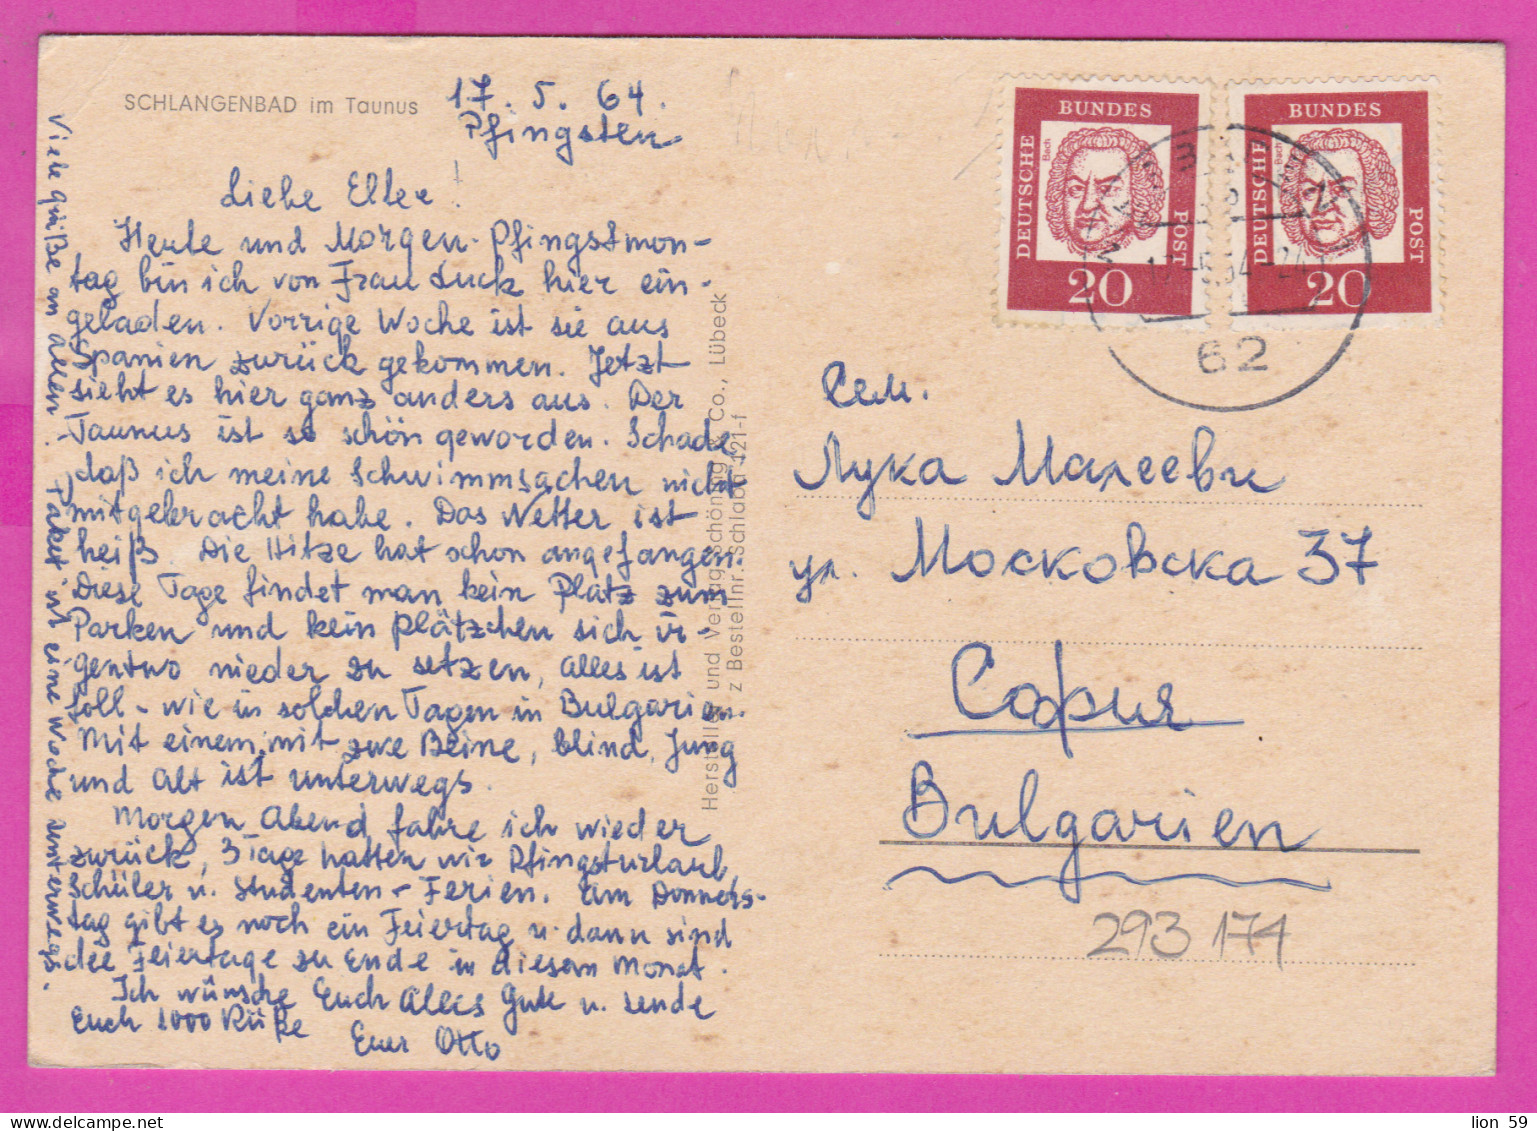 SCHLANGENBAD im Taunus
17. 5. 64.
Pfingsten
Liebe Elter!
Heute und Morgen-Pfingstmon-
tag bin ich von Frau Luck hier ein-
geladen. Vorrige Woche ist sie aus
Spanien zurück gekommen. Jetzt
sieht es hier ganz anders aus. Der
Taunus ist so schön geworden. Schade
daß ich meine Schwimmsachen nicht
mitgebracht habe. Das Wetter ist
heiß. Die Hitze hat schon angefangen.
Diese Tage findet man kein Platz zum
Parken und kein plätzchen sich ir-
gentwo nieder zu setzen, alles ist
foll - wie in solchen Tagen in Bulgarien.
Mit einem, mit zwe Beine, blind, Jung
und Alt ist unterwegs.
Morgen Abend fahre ich wieder
zurück, 3 Tage hatten wir Pfingsturlaub,
Schüler u. Studenten - Ferien. Am Donners-
tag gibt es noch ein Feiertag u. dann sind
die Feiertage zu Ende in diesem Monat.
Ich wünsche Euch Alles Gute u. sende
Euch 1000 Küße
Euer Otto
Viele Grüße an allen. Paket ist eine Woche unterwegs.
Hersteller und Verlag Schöning & Co., Lübeck
Bestellnr. Schlaba 121-f
DEUTSCHE BUNDES POST
Bach
20
DEUTSCHE BUNDES POST
Bach
20
WIESBADEN
62
Сем.
Лука Малеевки
ул. Московска 37
София
Bulgarien
293 171
lion 59